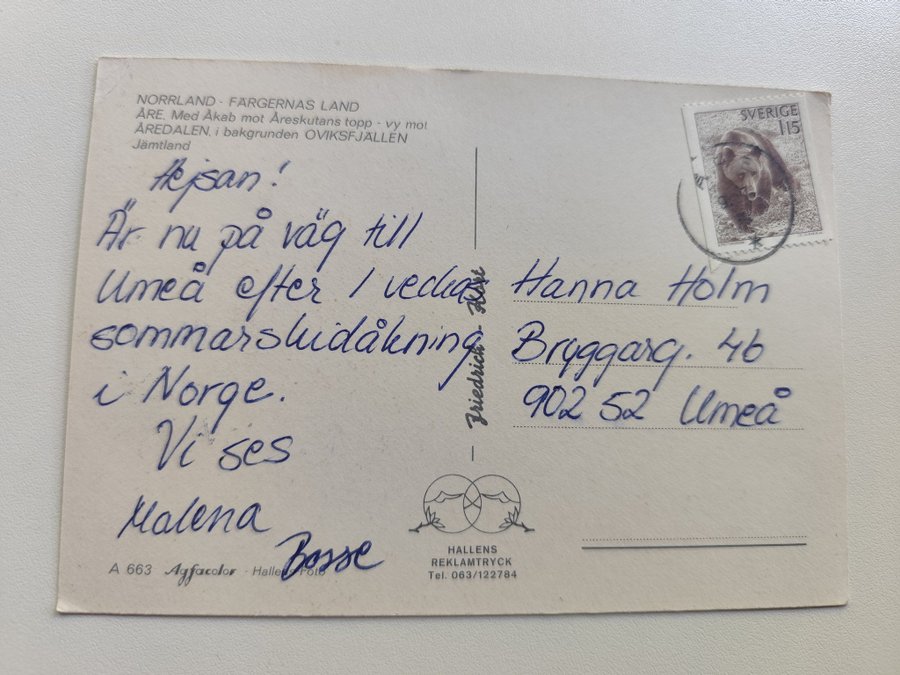 NORRLAND - FÄRGERNAS LAND
ÅRE. Med Åkab mot Åreskutans topp - vy mot
ÅREDALEN, i bakgrunden OVIKSFJÄLLEN
Jämtland
Hejsan!
Är nu på väg till
Umeå efter 1 veckas
sommarskidåkning
i Norge.
Vi ses
Malena
Bosse
A 663 Agfacolor · Hallens Foto
Friedrich - Kort
HALLENS
REKLAMTRYCK
Tel. 063/122784
SVERIGE
115
Hanna Holm
Bryggarg. 4b
902 52 Umeå